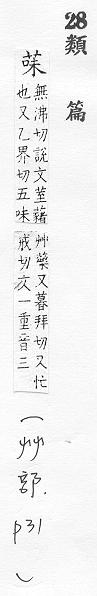 28類篇
菋
無沸切說文荎藸
也又乙界切五味
艸藥又暮拜切又忙
戒切文一重音三
(艸部.
p31)